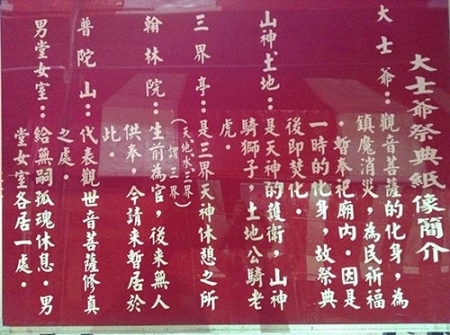 大士爺祭典紙像簡介
大士爺：觀音菩薩的化身，為
鎮魔消火，為民祈福
．暫奉祀廟內．因是
一時的化身，故祭典
後即焚化．
山神土地：是天神的護衛，山神
騎獅子，土地公騎老
虎．
三界亭：是三界天神休憩之所
（天地水三界謂三界）
翰林院：生前為官，後來無人
供奉，今請來暫居於
此．
普陀山：代表觀世音菩薩修真
之處．
男堂女室：給無嗣孤魂休息．男
堂女室各居一處．